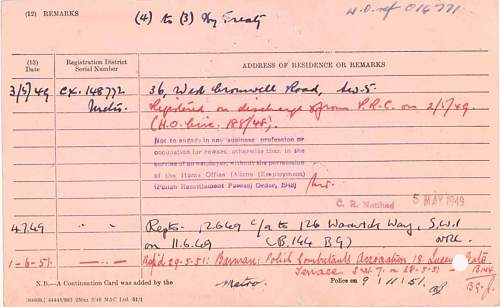 (12) REMARKS
(4) to (3) by Treaty
H.O. ref 016771
(13)
Date
Registration District
Serial Number
ADDRESS OF RESIDENCE OR REMARKS
3/5/49 CX. 148772 36, West Cromwell Road, S.W.5.
Metro. Registered on discharge from P.R.C. on 2/5/49
(H.O. Circ. 188/48).
Not to engage in any business profession or
occupation for reward, otherwise than in the
service of an employer, without the permission
of the Home Office (Aliens (Employment)
(Polish Resettlement Forces) Order, 1948)
C. R. Notified 5 MAY 1949
4.7.49 " " Repts. 12649 c/a to 126 Warwick Way, S.W.1
on 11.6.49 (B.144 B.G.)
1-6-51 Rptd 29-5-51: Barman: Polish Combatants Association 18 Queens Gate
Terrace S.W.7. on 28-5-51
N.B.—A Continuation Card was added by the Metro. Police on 9/11/51